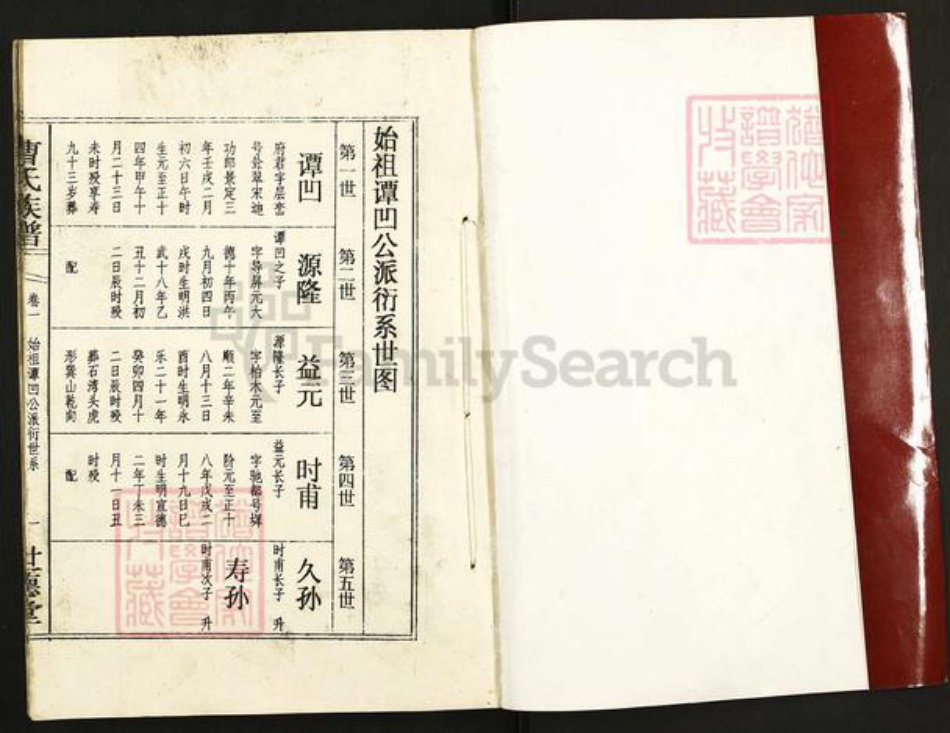 始祖谭凹公派衍系世图
第一世
谭凹
府君字层峦
号耸翠宋迪
功郎景定三
年壬戌二月
初六日午时
生元至正十
四年甲午十
月二十三日
未时殁享寿
九十三岁葬
第二世
源隆
谭凹之子
字导屏元大
德十年丙午
九月初四日
戌时生明洪
武十八年乙
丑十二月初
二日辰时殁
配
第三世
益元
源隆长子
字柏木元至
顺二年辛未
八月十三日
酉时生明永
乐二十一年
癸卯四月十
二日辰时殁
葬石湾头虎
形巽山乾向
第四世
时甫
益元长子
字驰都号墀
阶元至正十
八年戊戌二
月十九日巳
时生明宣德
二年丁未三
月十一日丑
时殁
配
第五世
久孙
时甫长子 升
寿孙
时甫次子 升
曹氏族谱
卷一 始祖谭凹公派衍世系
一
世德堂
FamilySearch
谱学会
收藏
谱学会
收藏